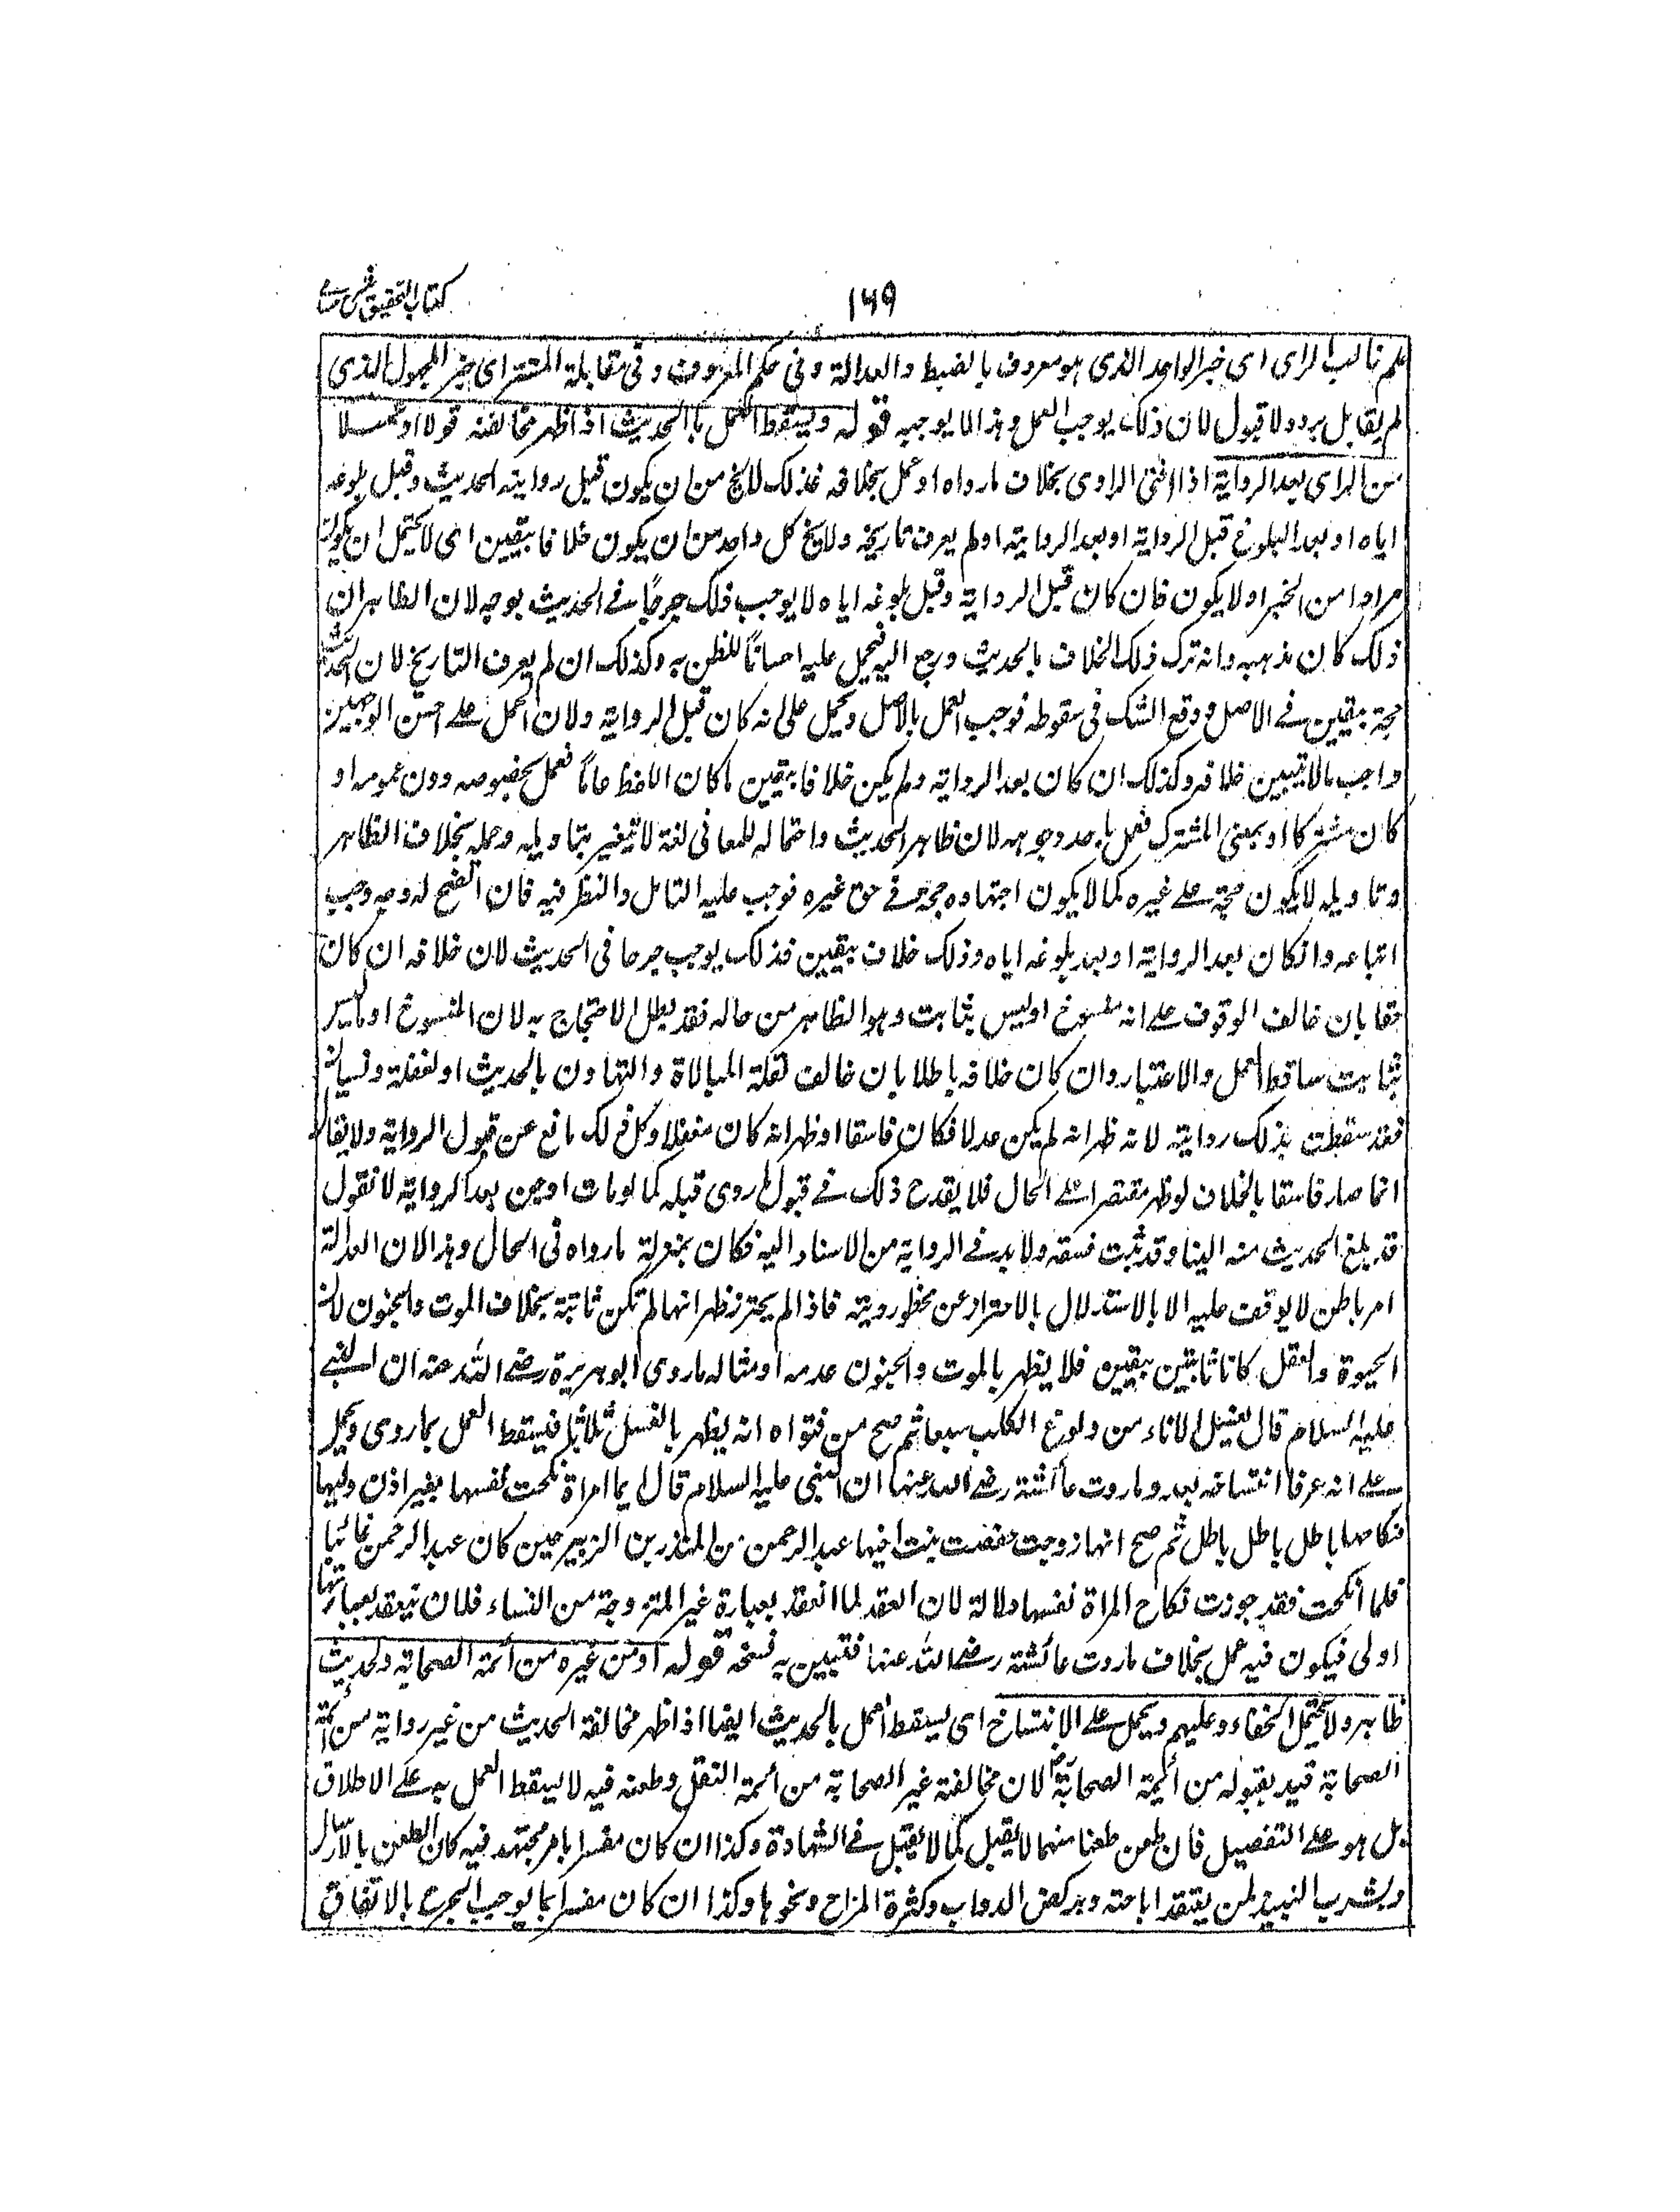 كتاب التحقيق شرح حسامى
١٦٩
علم غالب الراى اى خبر الواحد الذى هو معروف بالضبط والعدالة وفى حكم المعروف وفى مقابلة المستتر اى خبر المجهول الذى
لم يقابل برد ولا قبول لان ذلك يوجب العمل وهذا لا يوجبه قوله ويسقط العمل بالحديث اذا ظهر مخالفته قولا او عملا
من الراى بعد الرواية اذا افتى الراوى بخلاف ما رواه او عمل بخلافه فذلك لا يخ من ان يكون قبل روايته الحديث وقبل بلوغه
اياه او بعد البلوغ قبل الرواية او بعد الرواية او لم يعرف تاريخه ولا يخ كل واحد من ان يكون خلافا بيقين اى لا يحتمل ان يكون
مرادا من الخبر او لا يكون فان كان قبل الرواية وقبل بلوغه اياه لا يوجب ذلك جرحا فى الحديث بوجه لان الظاهر ان
ذلك كان مذهبه وانه ترك ذلك الخلاف بالحديث ورجع اليه فيحمل عليه احسانا للظن به وكذلك ان لم يعرف التاريخ لان الحديث
حجة بيقين فى الاصل ووقع الشك فى سقوطه فوجب العمل بالاصل ويحمل على انه كان قبل الرواية ولان الحمل على احسن الوجهين
واجب ما لا يتبين خلافه وكذلك ان كان بعد الرواية ولم يكن خلافا بيقين ما كان اللفظ عاما فعمل بخصوصه دون عمومه او
كان مشتركا او بمعنى المشترك فعمل باحد وجوهه لان ظاهر الحديث واحتماله للمعانى لغة لا يتغير بتاويله وحمله بخلاف الظاهر
وتاويله لا يكون حجة على غيره كما لا يكون اجتهاده حجة فى حق غيره فوجب عليه التامل والنظر فيه فان اتضح له وجه وجب
اتباعه وان كان بعد الرواية او بعد بلوغه اياه وذلك خلاف بيقين فذلك يوجب جرحا فى الحديث لان خلافه ان كان
حقا بان خالف الوقوف على انه منسوخ او ليس بثابت وهو الظاهر من حاله فقد بطل الاحتجاج به لان المنسوخ او ما ليس
بثابت ساقط العمل والاعتبار وان كان خلافه باطلا بان خالف لقلة المبالاة والتهاون بالحديث او لغفلة ونسيان
فقد سقطت بذلك روايته لانه ظهر انه لم يكن عدلا فكان فاسقا او ظهر انه كان مغفلا وكل ذلك مانع عن قبول الرواية ولا يقال
انما صار فاسقا بالخلاف لو ظهر مقتصرا على الحال فلا يقدح ذلك فى قبول ما روى قبله كما لو مات او جن بعد الرواية لا نقول
قد بلغ الحديث منه الينا وقد ثبت فسقه ولا بد فى الرواية من الاسناد اليه فكان بمنزلة ما رواه فى الحال وهذا لان العدالة
امر باطن لا يوقف عليه الا بالاستدلال بالاحتراز عن محظور دينه فاذا لم يحترز ظهر انها لم تكن ثابتة بخلاف الموت والجنون لان
الحيوة والعقل كانا ثابتين بيقين فلا يظهر بالموت والجنون عدمه او مثاله ما روى ابو هريرة رضى الله عنه ان النبى
عليه السلام قال يغسل الاناء من ولوغ الكلب سبعا ثم صح من فتواه انه يطهر بالغسل ثلاثا فيسقط العمل بما روى ويحمل
على انه عرف انتساخه بعد وما روت عائشة رضى الله عنها ان النبى عليه السلام قال ايما امراة نكحت نفسها بغير اذن وليها
فنكاحها باطل باطل باطل ثم صح انها زوجت حفصة بنت اخيها عبد الرحمن من المنذر بن الزبير حين كان عبد الرحمن غائبا
فلما انكحت فقد جوزت نكاح المراة نفسها دلالة لان العقد لما انعقد بعبارة غير المتزوجة من النساء فلان ينعقد بعبارتها
اولى فيكون فيه عمل بخلاف ما روت عائشة رضى الله عنها فتبين به نسخه قوله او من غيره من ائمة الصحابة والحديث
ظاهر ولا يحتمل الخفاء وعليهم ويحمل على الانتساخ اى يسقط العمل بالحديث ايضا اذا ظهر مخالفة الحديث من غير رواية من ائمة
الصحابة قيد بقبوله من ائمة الصحابة لان مخالفة غير الصحابة من ائمة النقل وطعنه فيه لا يسقط العمل به على الاطلاق
بل هو على التفصيل فان طعن طعنا مبهما لا يقبل كما لا يقبل فى الشهادة وكذا ان كان مفسرا بامر مجتهد فيه كان الطعن بالارسال
وبشرب النبيذ لمن يعتقد اباحته وبركض الدواب وكثرة المزاح ونحوها وكذا ان كان مفسرا بما يوجب الجرح بالاتفاق